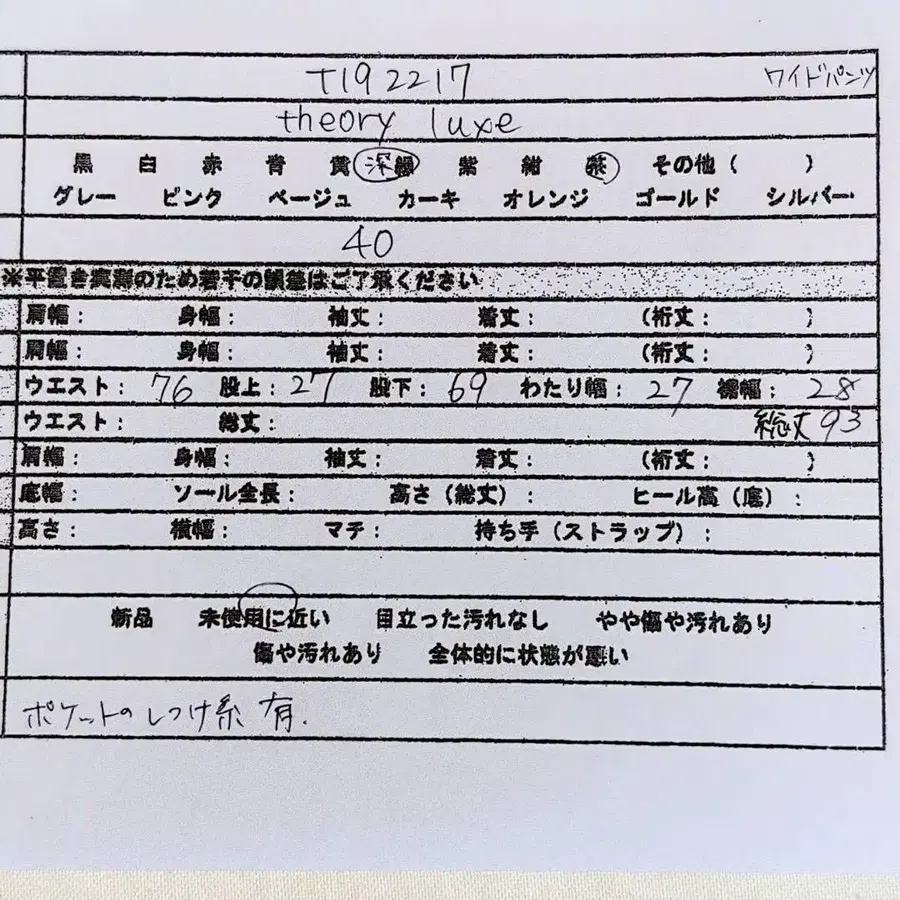 T192217 ワイドパンツ
theory luxe
黒 白 赤 青 黄 深緑 紫 紺 茶 その他( )
グレー ピンク ベージュ カーキ オレンジ ゴールド シルバー
40
※平置き実測のため若干の誤差はご了承ください
肩幅: 身幅: 袖丈: 着丈: (裄丈: )
肩幅: 身幅: 袖丈: 着丈: (裄丈: )
ウエスト: 76 股上: 27 股下: 69 わたり幅: 27 裾幅: 28
ウエスト: 総丈: 総丈 93
肩幅: 身幅: 袖丈: 着丈: (裄丈: )
底幅: ソール全長: 高さ(総丈): ヒール高(底):
高さ: 横幅: マチ: 持ち手(ストラップ):
新品 未使用に近い 目立った汚れなし やや傷や汚れあり
傷や汚れあり 全体的に状態が悪い
ポケットのしつけ糸 有.